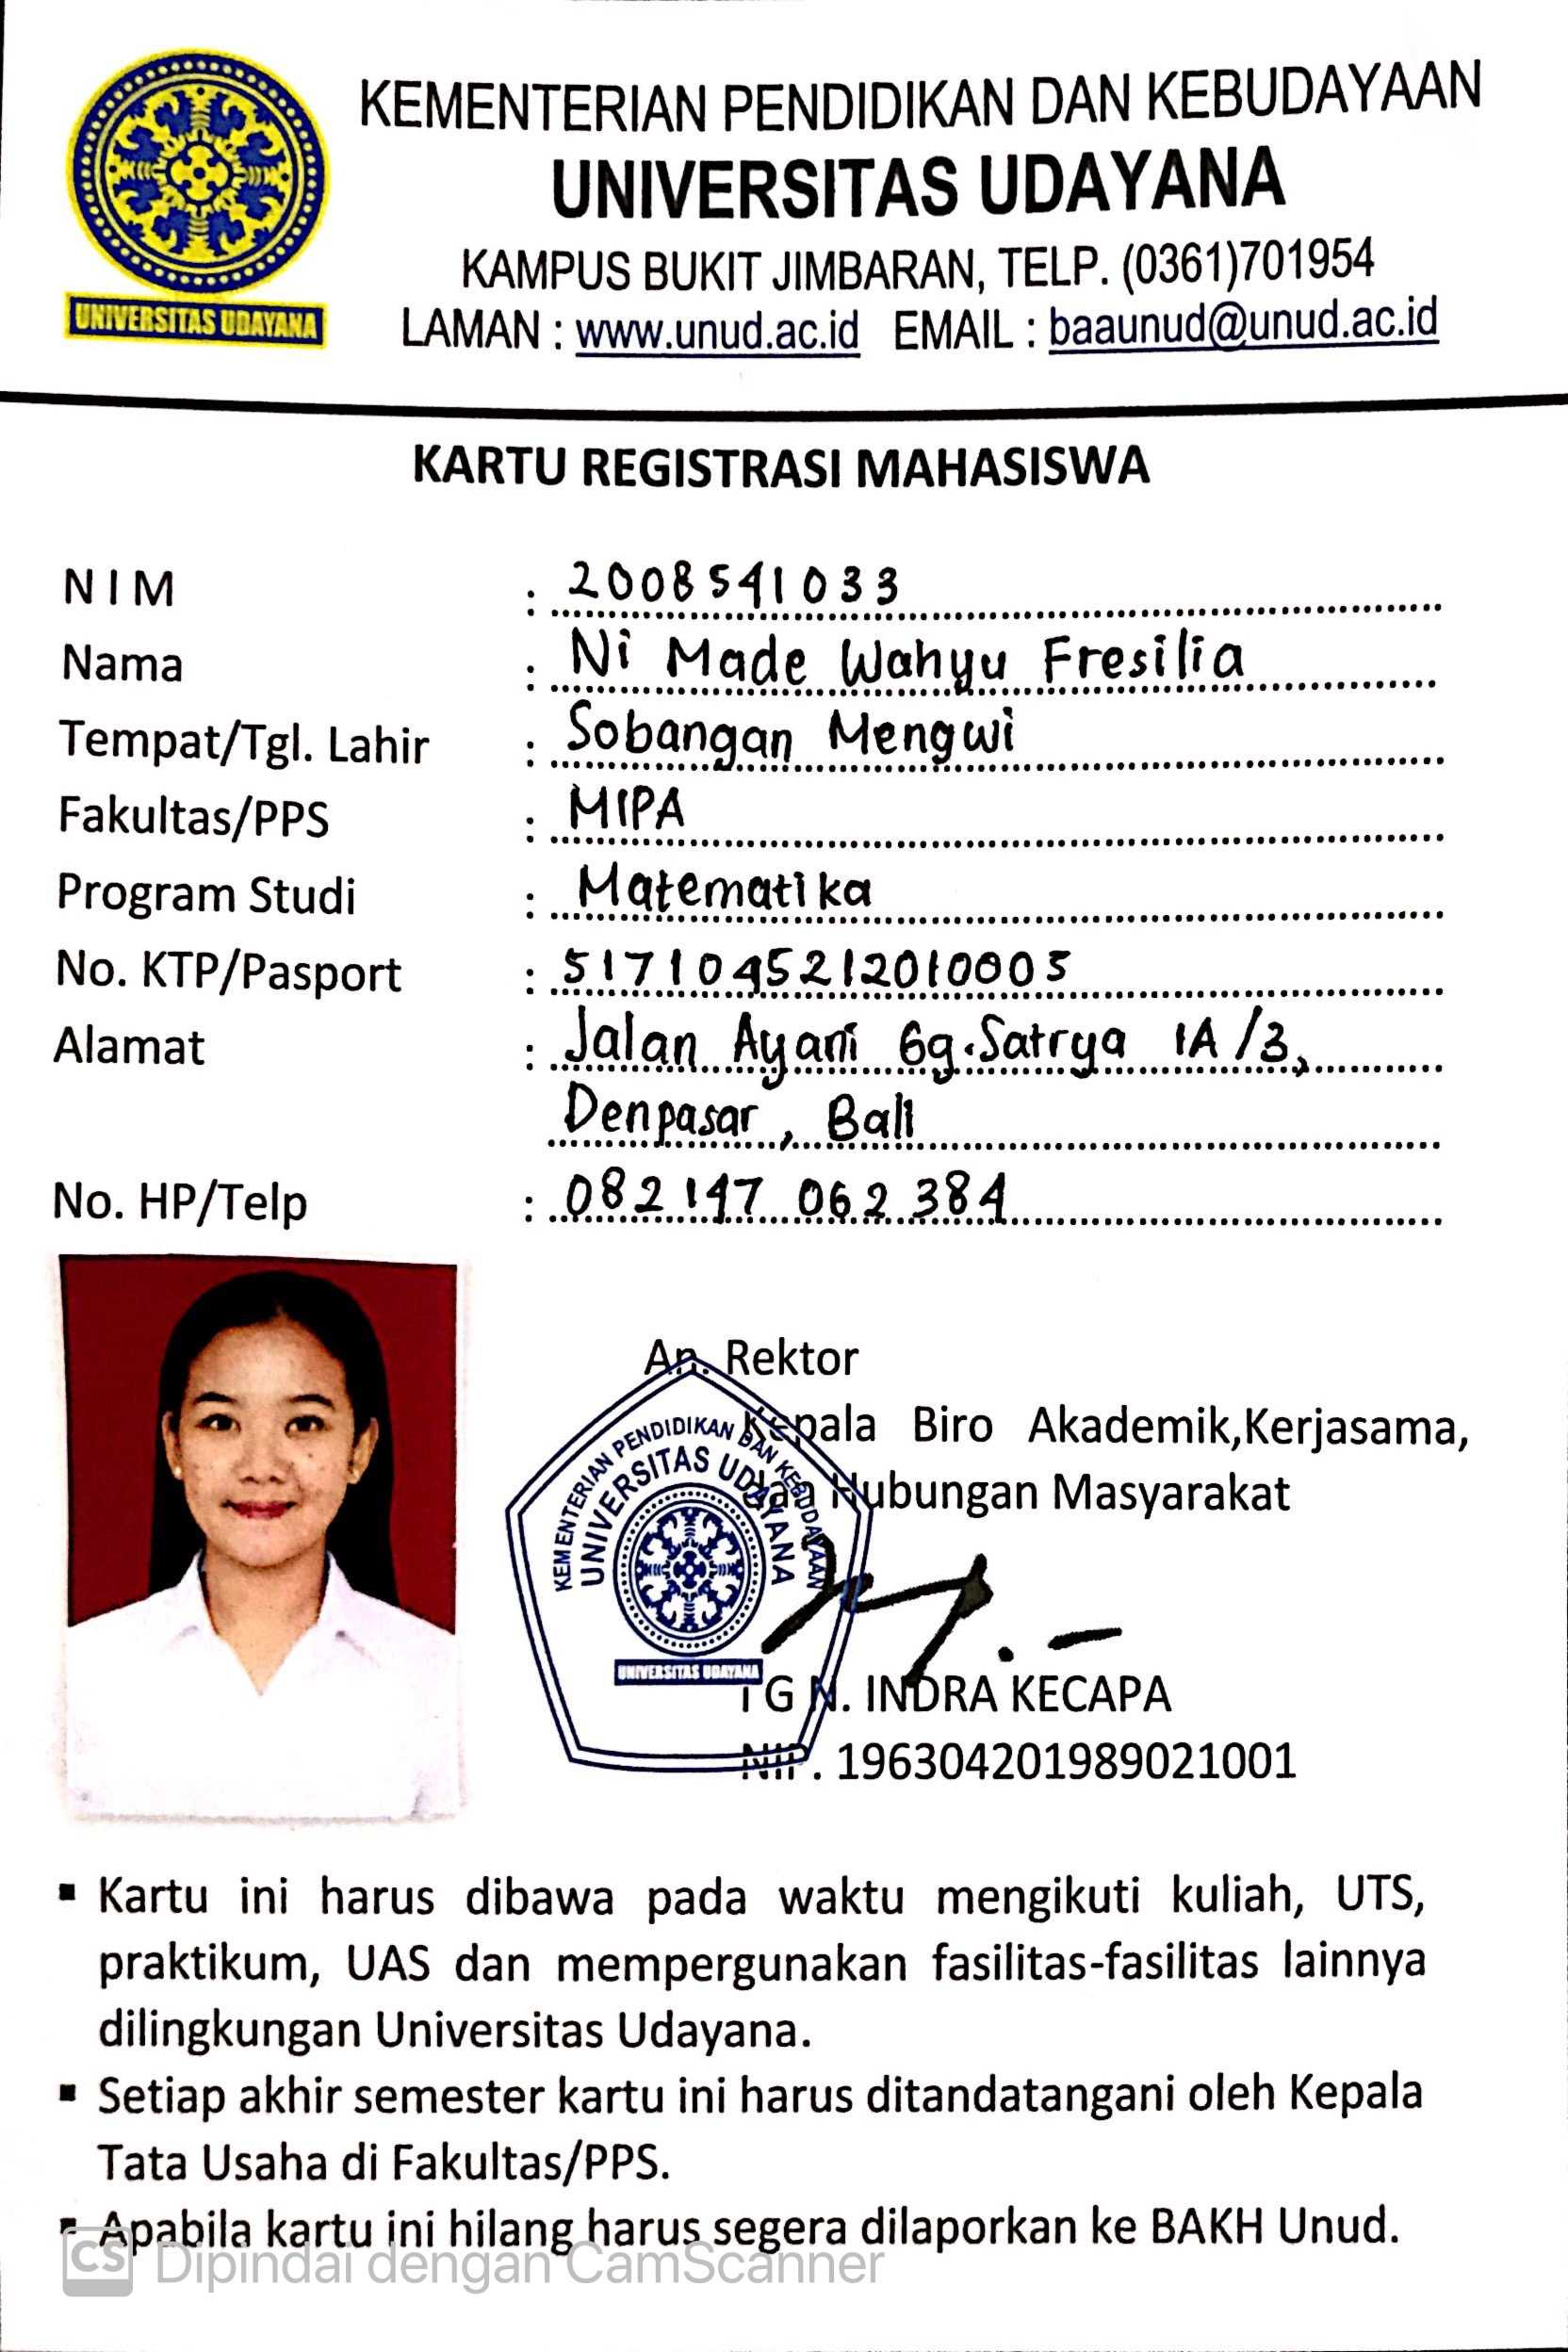 KEMENTERIAN PENDIDIKAN DAN KEBUDAYAAN
UNIVERSITAS UDAYANA
KAMPUS BUKIT JIMBARAN, TELP. (0361)701954
LAMAN : www.unud.ac.id EMAIL : baaunud@unud.ac.id
UNIVERSITAS UDAYANA
KARTU REGISTRASI MAHASISWA
NIM : 2008541033
Nama : Ni Made Wahyu Fresilia
Tempat/Tgl. Lahir : Sobangan Mengwi
Fakultas/PPS : MIPA
Program Studi : Matematika
No. KTP/Pasport : 5171045212010005
Alamat : Jalan Ayani Gg. Satrya 1A/3,
Denpasar, Bali
No. HP/Telp : 082 147 062 384
An. Rektor
Kepala Biro Akademik,Kerjasama,
dan Hubungan Masyarakat
KEMENTERIAN PENDIDIKAN DAN KEBUDAYAAN
UNIVERSITAS UDAYANA
UNIVERSITAS UDAYANA
I G N. INDRA KECAPA
NIP. 196304201989021001
▪ Kartu ini harus dibawa pada waktu mengikuti kuliah, UTS,
praktikum, UAS dan mempergunakan fasilitas-fasilitas lainnya
dilingkungan Universitas Udayana.
▪ Setiap akhir semester kartu ini harus ditandatangani oleh Kepala
Tata Usaha di Fakultas/PPS.
▪ Apabila kartu ini hilang harus segera dilaporkan ke BAKH Unud.
CS Dipindai dengan CamScanner